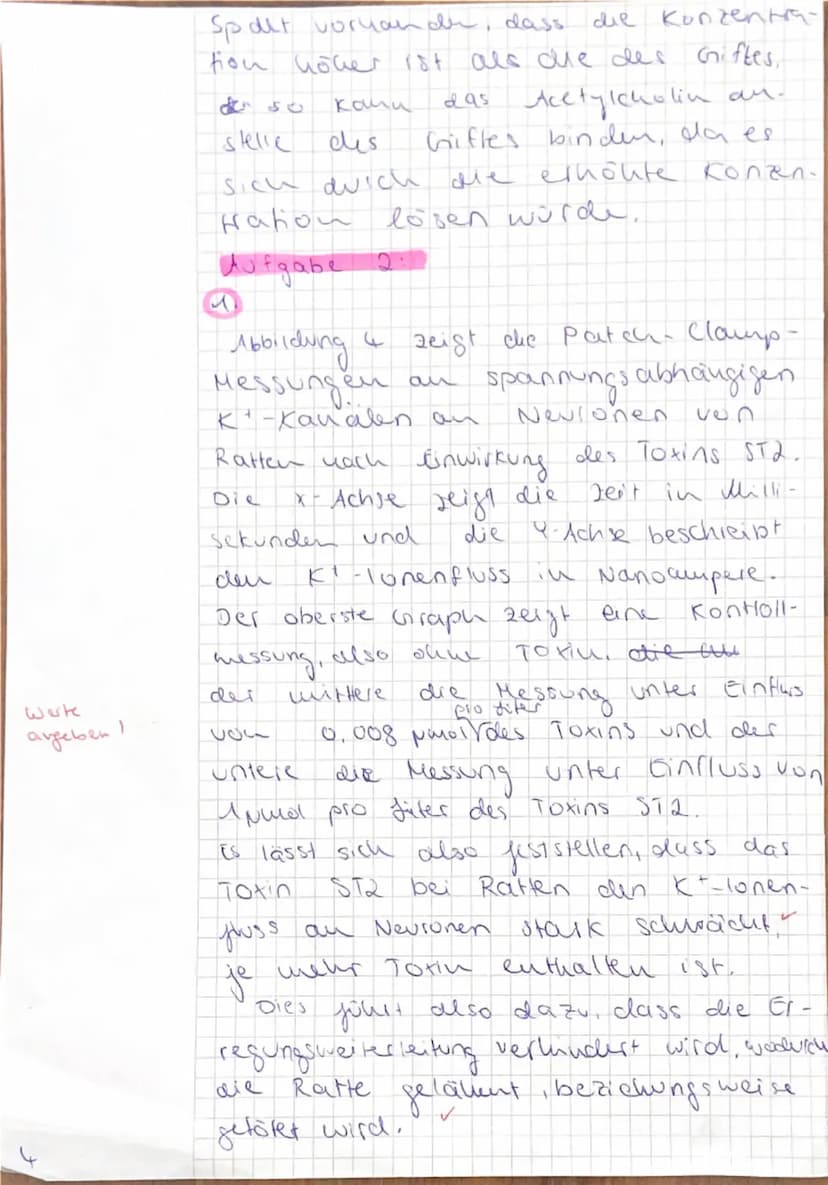 Spalt vorhanden, dass die Konzentra-
tion höher ist als die des Giftes,
so kann das Acetylcholin an-
stelle des Giftes binden, da es
sich durch die erhöhte Konzen-
tration lösen würde.
Aufgabe 2:
1.
Abbildung 4 zeigt die Patch-Clamp-
Messungen an spannungsabhängigen
K⁺-Kanälen an Neuronen von
Ratten nach Einwirkung des Toxins ST2.
Die x-Achse zeigt die Zeit in Milli-
sekunden und die Y-Achse beschreibt
den K⁺-Ionenfluss in Nanoampere.
Der oberste Graph zeigt eine Kontroll-
messung, also ohne Toxin, die
der mittlere die Messung unter Einfluss
pro Liter
Werte
angeben!
von 0,008 µmol des Toxins und der
untere die Messung unter Einfluss von
1 µmol pro Liter des Toxins ST2.
Es lässt sich also feststellen, dass das
Toxin ST2 bei Ratten den K⁺-Ionen-
fluss an Neuronen stark schwächt, ✓
je mehr Toxin enthalten ist.
Dies führt also dazu, dass die Er-
regungsweiterleitung verhindert wird, wodurch
die Ratte gelähmt, beziehungsweise
getötet wird. ✓
4